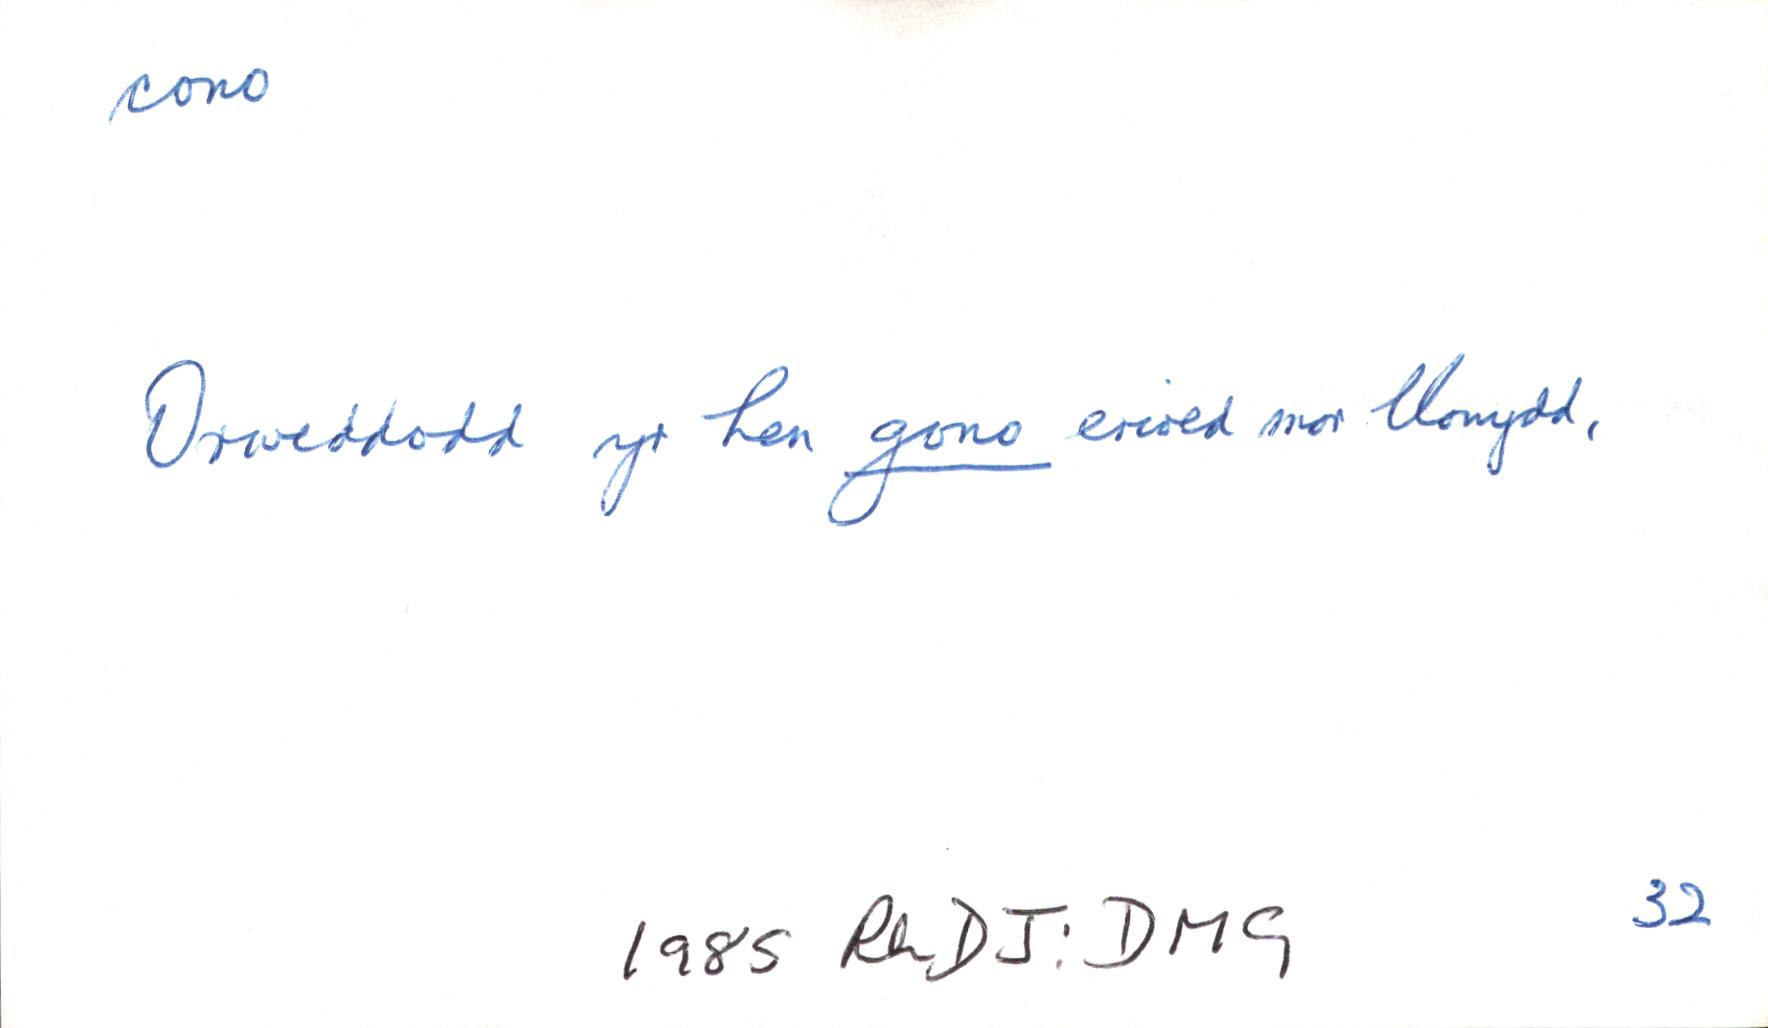 cono
Orweddodd yr hen gono erioed mor llonydd,
1985 RhDJ: DMG
32